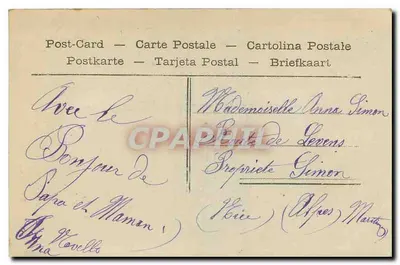 Post-Card — Carte Postale — Cartolina Postale
Postkarte — Tarjeta Postal — Briefkaart
Avec le
Bonjour de
Papa et Maman
Anna Novello
Mademoiselle Anna Simon
Route de Levens
Propriete Simon
(Nice) (Alpes Maritimes)
CPARAMA